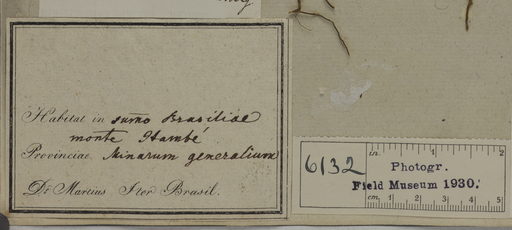 Habitat in sum̄o Brasiliae
monte Itambé
Provinciae Minarum generalium
Dr. Martius Iter Brasil.
6132
in. 1 2
Photogr.
Field Museum 1930.
cm. 1 2 3 4 5